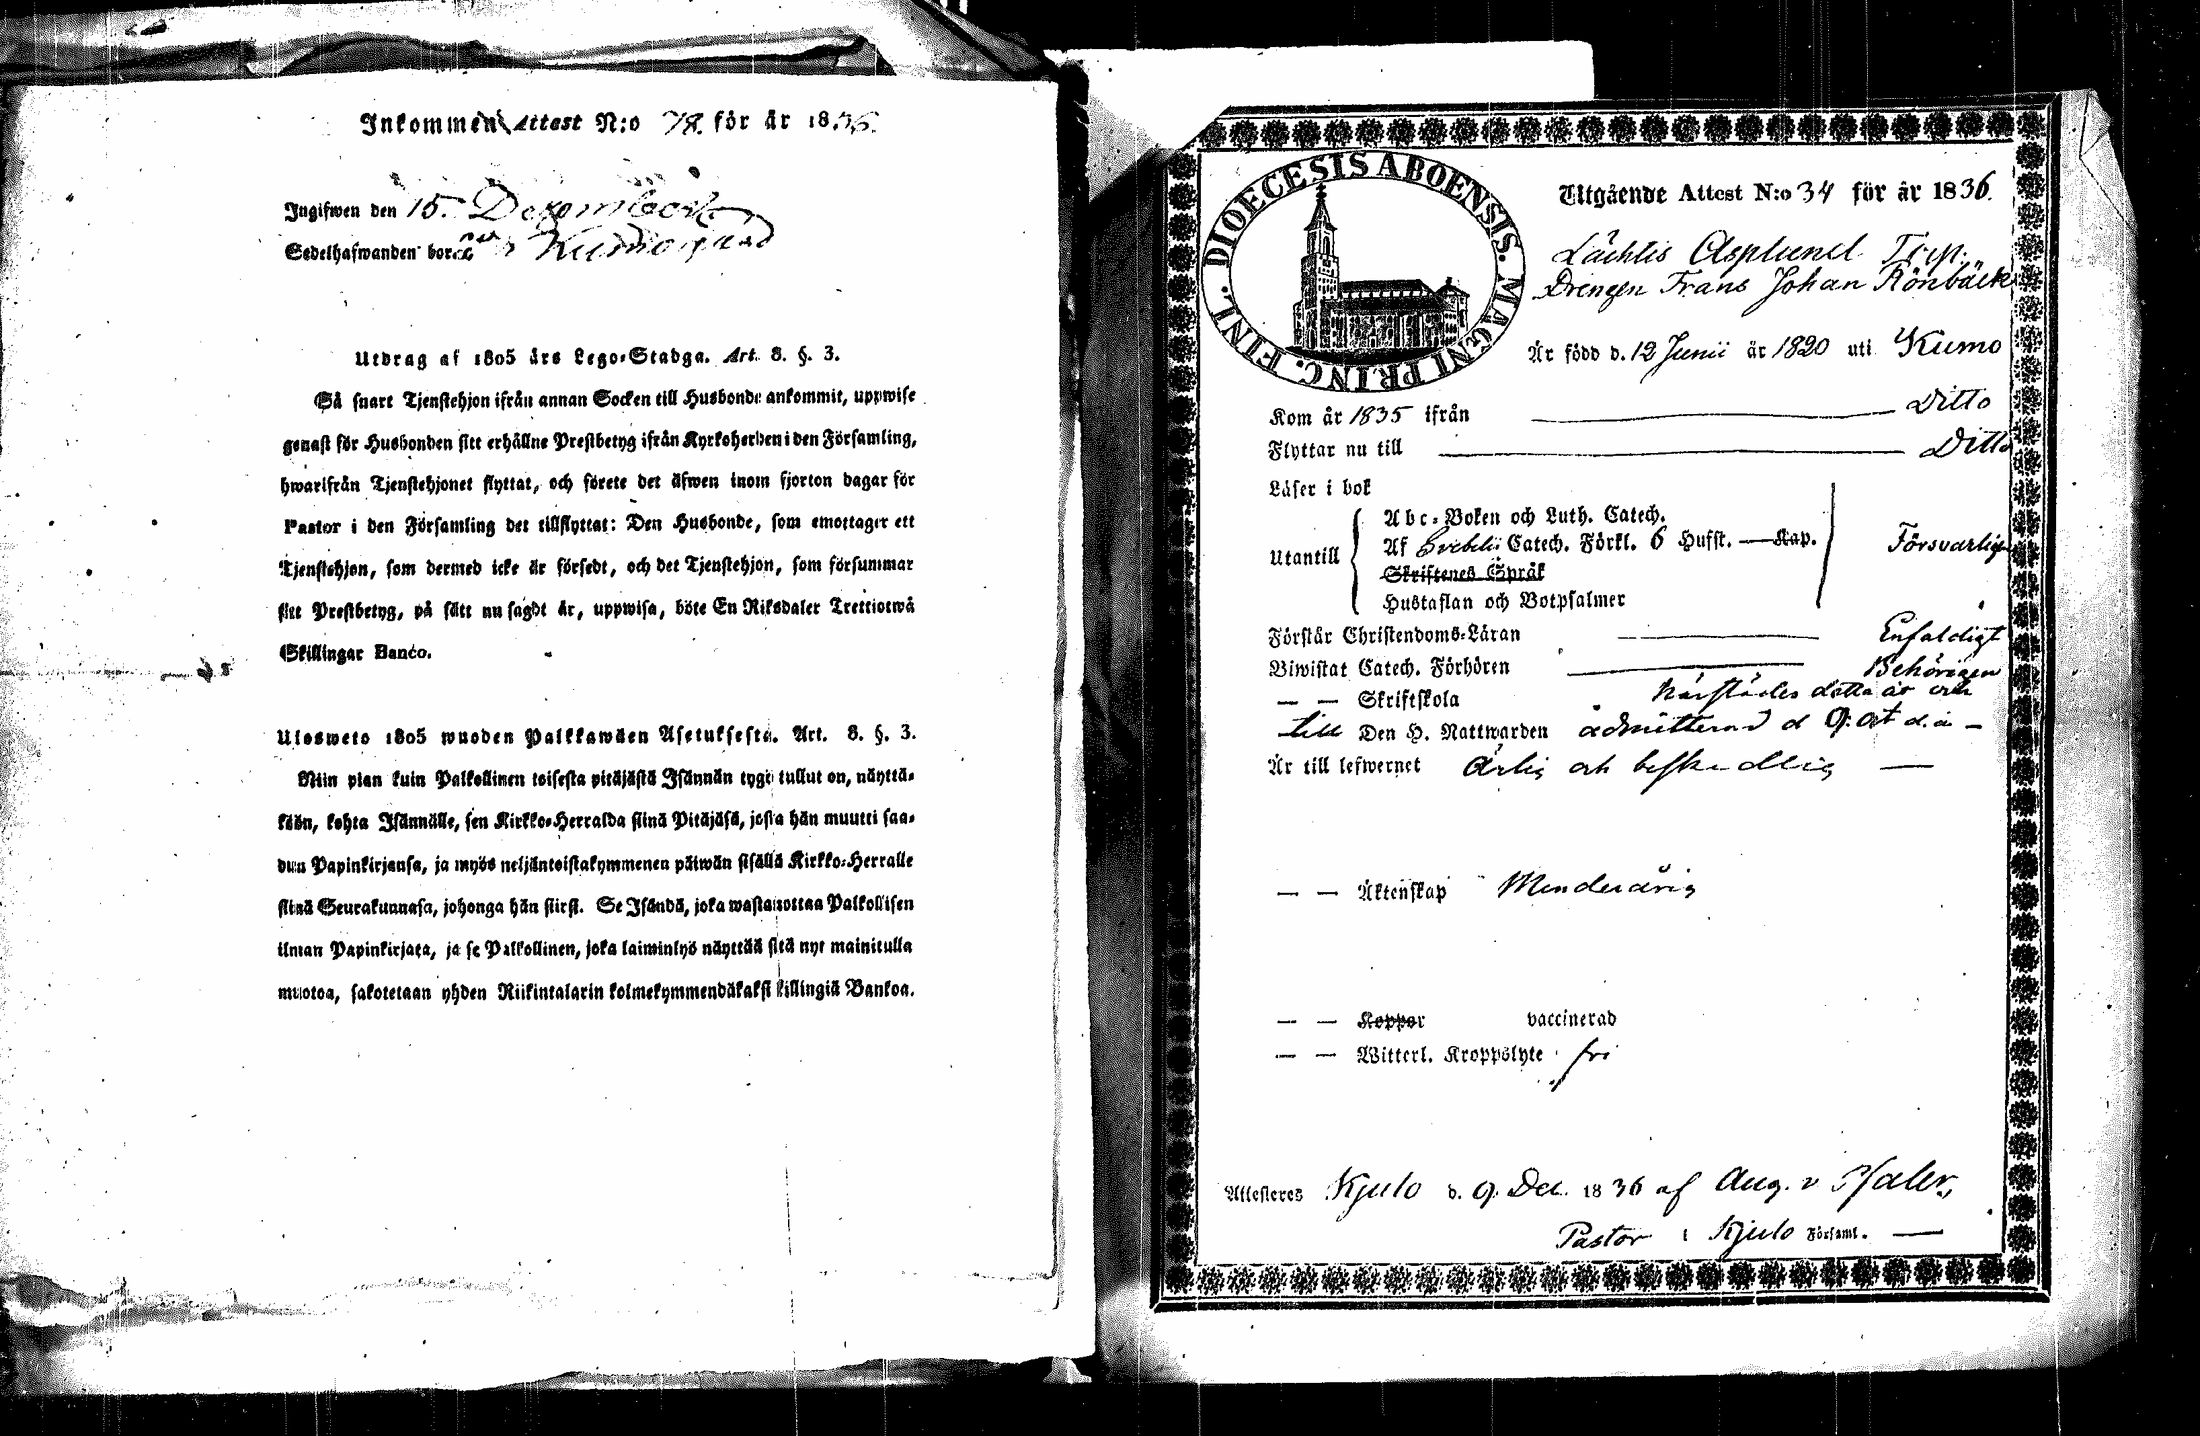 Inkommen Attest N:o 78. för år 1836.
Ingifwen den 15. December
Sedelhafwanden bor Kumogård
Utdrag af 1805 års Lego-Stadga. Art. 8. §. 3.
Så snart Tjenstehjon ifrån annan Socken till Husbonde ankommit, uppwise
genast för Husbonden sitt erhållne Prestbetyg ifrån Kyrkoherden i den Församling,
hwarifrån Tjenstehjonet flyttat, och förete det äfwen inom fjorton dagar för
Pastor i den Församling det tillflyttat: Den Husbonde, som emottager ett
Tjenstehjon, som dermed icke är försedt, och det Tjenstehjon, som försummar
sitt Prestbetyg, på sätt nu sagdt är, uppwisa, böte En Riksdaler Trettiotwå
Skillingar Banco.
Ulosweto 1805 wuoden Palkkawäen Asetuksesta. Art. 8. §. 3.
Niin pian kuin Palkollinen toisesta pitäjästä Isännän tygö tullut on, näyttä-
köön, kohta Isännälle, sen Kirkko-Herralda siinä Pitäjäsä, josta hän muutti saa-
dun Papinkirjansa, ja myös neljäntoistakymmenen päiwän sisällä Kirkko-Herralle
siinä Seurakunnasa, johonga hän siirsi. Se Isändä, joka wastanottaa Palkollisen
ilman Papinkirjata, ja se Palkollinen, joka laiminlyö näyttää sitä nyt mainitulla
muotoa, sakotetaan yhden Riikintalarin kolmekymmendäkaksi killingiä Bankoa.
DIOECESIS ABOENSIS. MAGNI PRINC. FINL.
Utgående Attest N:o 34 för år 1836.
Lächtis Asplund Trp.
Drengen Frans Johan Rönbäck
Är född d. 12 Junii år 1820 uti Kumo
Kom år 1835 ifrån Ditto
Flyttar nu till Ditto
Läser i bok
Utantill
Abc-Boken och Luth. Catech.
Af Svebelii Catech. Förkl. 6 Hufst. — Kap.
Försvarligen
Skriftenes Språk
Hustaflan och Botpsalmer
Förstår Christendoms-Läran Enfaldigt
Biwistat Catech. Förhören Behörigen
— — Skriftskola härstädes detta år och
till Den H. Nattwarden admitterad d 9 Oct d. å —
Är till lefwernet Ärlig och beskedlig —
— — Äktenskap Minderårig
— — Koppor vaccinerad
— — Witterl. Kroppslyte fri
Attesteres Kjulo d. 9 Dec. 1836 af Aug. v
Pastor i Kjulo Församl. —